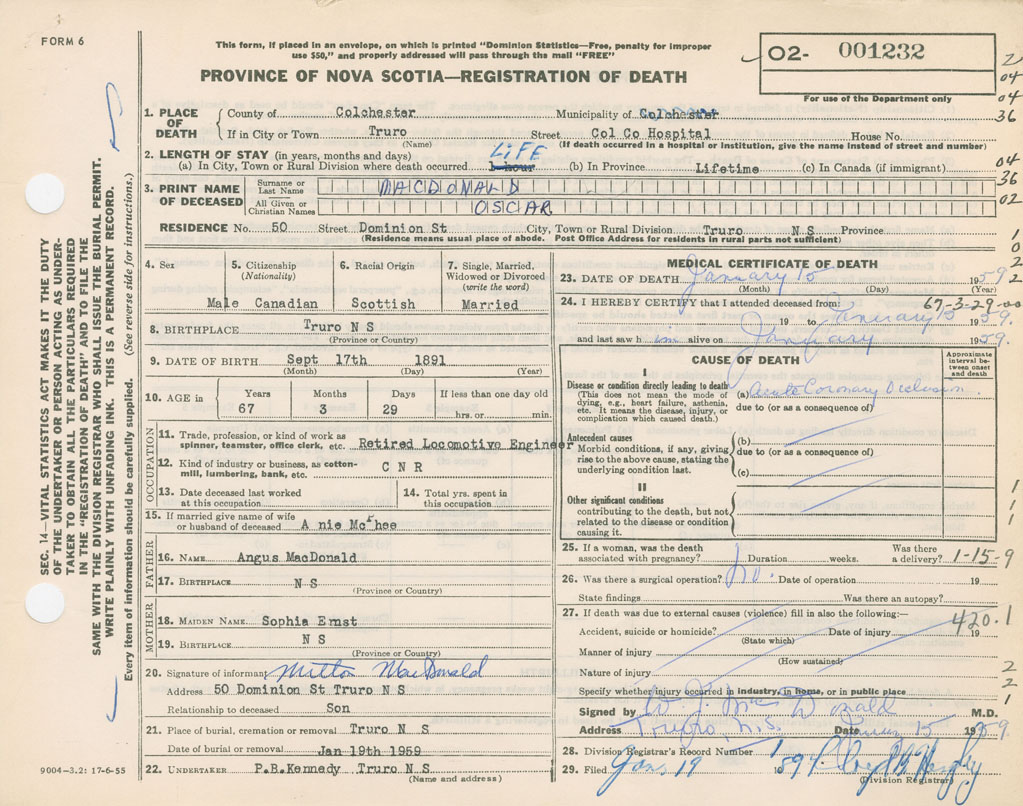 FORM 6
This form, if placed in an envelope, on which is printed "Dominion Statistics—Free, penalty for improper
use $50," and properly addressed will pass through the mail "FREE"
PROVINCE OF NOVA SCOTIA—REGISTRATION OF DEATH
02- 001232
For use of the Department only
2
04
04
36
04
36
02
1
0
2
2
SEC. 14—VITAL STATISTICS ACT MAKES IT THE DUTY
OF THE UNDERTAKER OR PERSON ACTING AS UNDER-
TAKER TO OBTAIN ALL THE PARTICULARS REQUIRED
IN THE "REGISTRATION OF DEATH" AND TO FILE THE
SAME WITH THE DIVISION REGISTRAR WHO SHALL ISSUE THE BURIAL PERMIT.
WRITE PLAINLY WITH UNFADING INK. THIS IS A PERMANENT RECORD.
Every item of information should be carefully supplied. (See reverse side for instructions.)
1. PLACE OF DEATH
County of Colchester Municipality of Colchester
If in City or Town Truro Street Col Co Hospital House No.
(Name) (If death occurred in a hospital or institution, give the name instead of street and number)
2. LENGTH OF STAY (in years, months and days) LIFE
(a) In City, Town or Rural Division where death occurred 1 hour (b) In Province Lifetime (c) In Canada (if immigrant)
3. PRINT NAME OF DECEASED
Surname or Last Name MACDONALD
All Given or Christian Names OSCAR
RESIDENCE No. 50 Street Dominion St City, Town or Rural Division Truro N S Province
(Residence means usual place of abode. Post Office Address for residents in rural parts not sufficient)
4. Sex
Male
5. Citizenship
(Nationality)
Canadian
6. Racial Origin
Scottish
7. Single, Married,
Widowed or Divorced
(write the word)
Married
8. BIRTHPLACE Truro N S
(Province or Country)
9. DATE OF BIRTH Sept 17th 1891
(Month) (Day) (Year)
10. AGE in
Years Months Days If less than one day old
67 3 29 hrs. or min.
OCCUPATION
11. Trade, profession, or kind of work as
spinner, teamster, office clerk, etc. Retired Locomotive Engineer
12. Kind of industry or business, as cotton-
mill, lumbering, bank, etc. C N R
13. Date deceased last worked
at this occupation
14. Total yrs. spent in
this occupation
15. If married give name of wife
or husband of deceased A nie McPhee
FATHER
16. NAME Angus MacDonald
17. BIRTHPLACE N S
(Province or Country)
MOTHER
18. MAIDEN NAME Sophia Ernst
19. BIRTHPLACE N S
(Province or Country)
20. Signature of informant Milton MacDonald
Address 50 Dominion St Truro N S
Relationship to deceased Son
21. Place of burial, cremation or removal Truro N S
Date of burial or removal Jan 19th 1959
22. UNDERTAKER P.B.Kennedy Truro N S
(Name and address)
9004-3.2: 17-6-55
MEDICAL CERTIFICATE OF DEATH
23. DATE OF DEATH January 15 1959
(Month) (Day) (Year)
24. I HEREBY CERTIFY that I attended deceased from: 67-3-29-00
19 to January 15 1959.
and last saw him alive on January 1959.
CAUSE OF DEATH
Approximate
interval be-
tween onset
and death
I
Disease or condition directly leading to death
(This does not mean the mode of
dying, e.g., heart failure, asthenia,
etc. It means the disease, injury, or
complication which caused death.)
(a) Acute Coronary Occlusion
due to (or as a consequence of)
Antecedent causes
Morbid conditions, if any, giving
rise to the above cause, stating the
underlying condition last.
(b)
due to (or as a consequence of)
(c)
II
Other significant conditions
contributing to the death, but not
related to the disease or condition
causing it.
1
1
1
25. If a woman, was the death
associated with pregnancy? Duration weeks.
Was there
a delivery? 1-15-9
26. Was there a surgical operation? No. Date of operation 19
State findings Was there an autopsy?
27. If death was due to external causes (violence) fill in also the following:—
420.1
Accident, suicide or homicide? Date of injury 19
(State which)
Manner of injury
(How sustained)
Nature of injury
Specify whether injury occurred in industry, in home, or in public place
2
2
1
Signed by W. J. MacDonald M.D.
Address Truro, N.S. Date 15 1959.
28. Division Registrar's Record Number 1
29. Filed Jan. 19 1959
(Division Registrar)